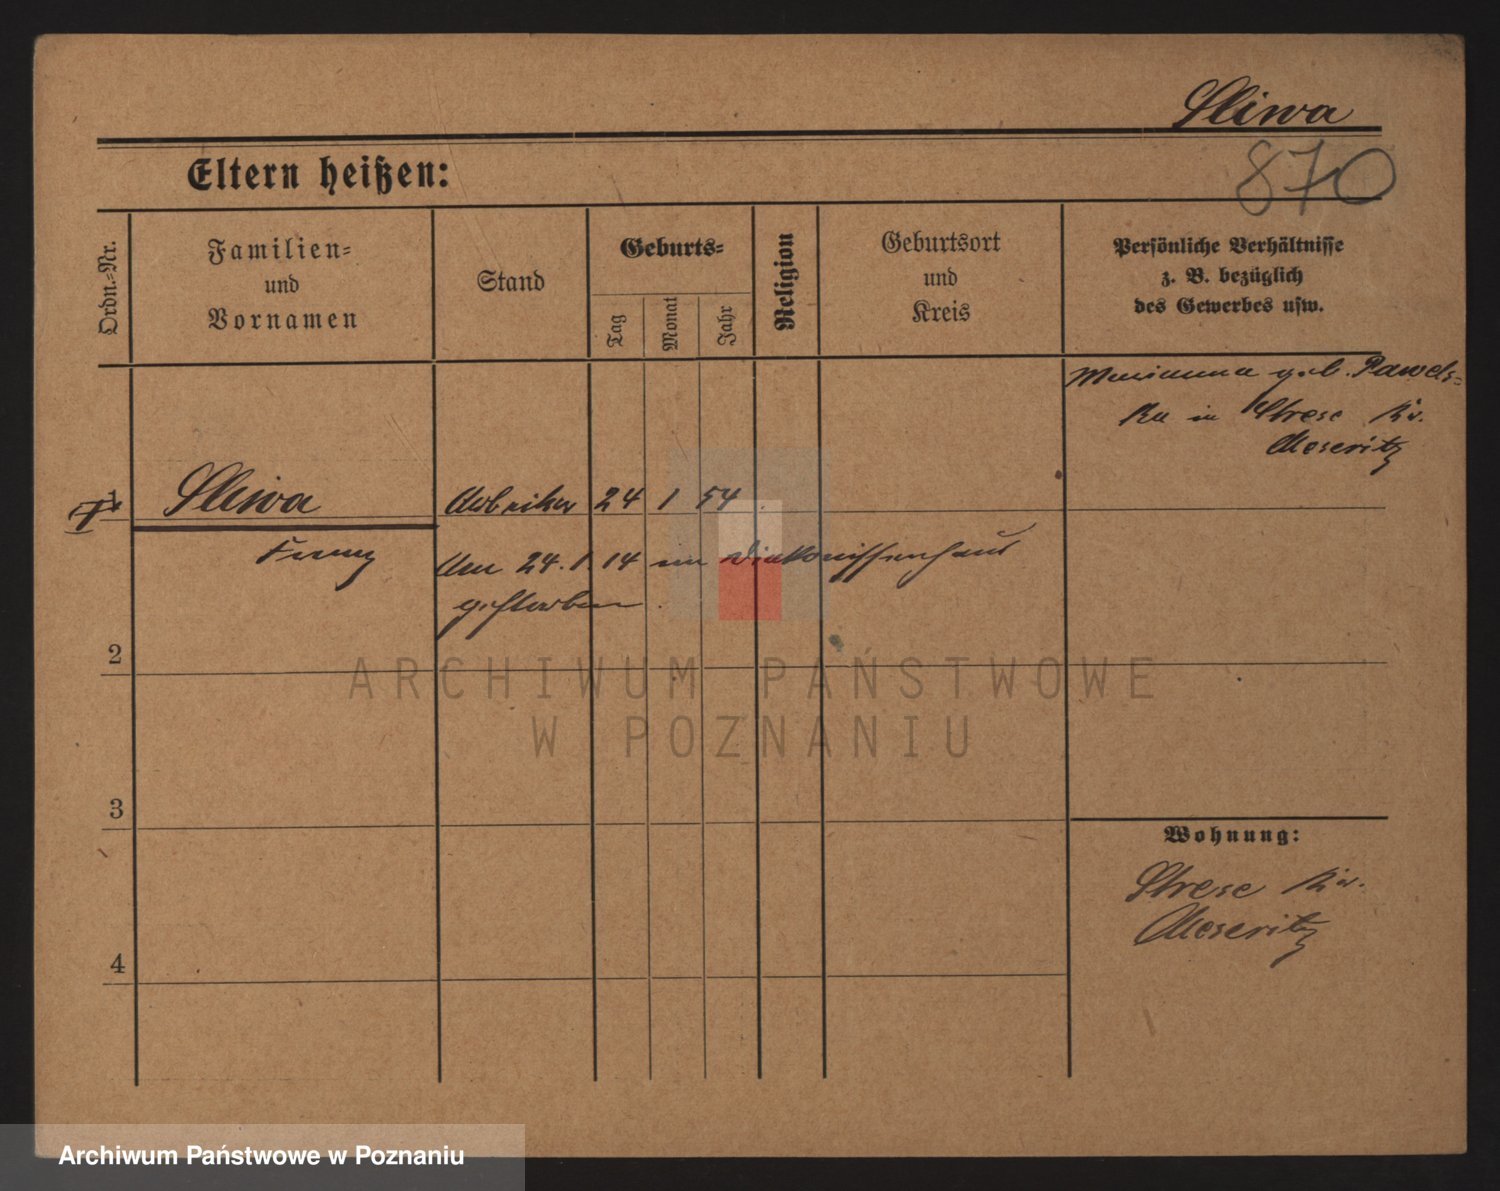 Sliwa
870
Eltern heißen:
Ordn.-Nr.
Familien-
und
Vornamen
Stand
Geburts-
Tag
Monat
Jahr
Religion
Geburtsort
und
Kreis
Persönliche Verhältnisse
z. B. bezüglich
des Gewerbes usw.
Marianna geb. Pawels-
ka in Strese Kr.
Meseritz
1 Sliwa Arbeiter 24 1 54
Franz
Am 24. 1. 14 im Diakonissenhaus
gestorben.
2
3
4
Wohnung:
Strese Kr.
Meseritz
ARCHIWUM PAŃSTWOWE
W POZNANIU
Archiwum Państwowe w Poznaniu